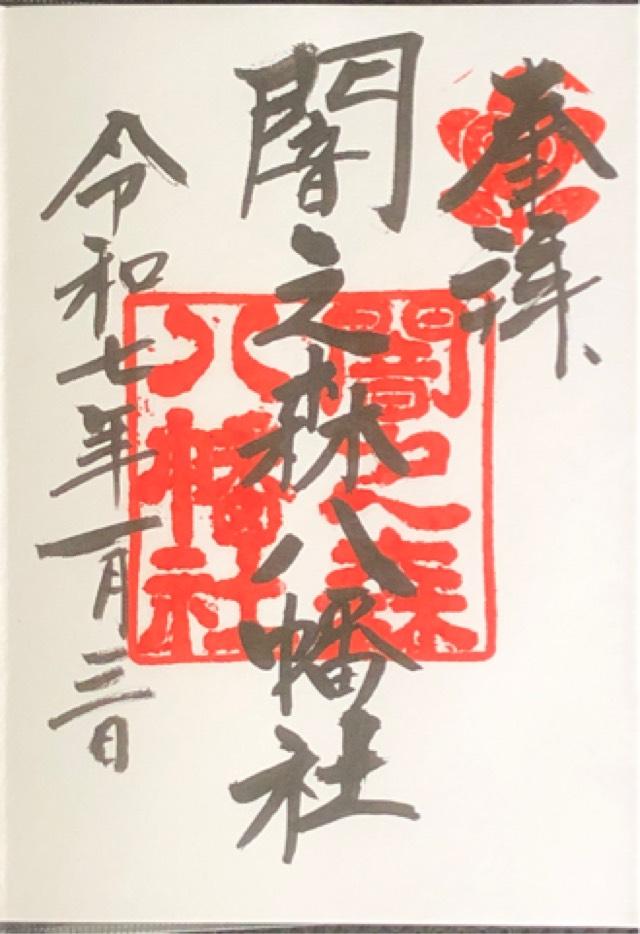 奉拝
闇之森八幡社
闇之森
八幡社
令和七年一月三日